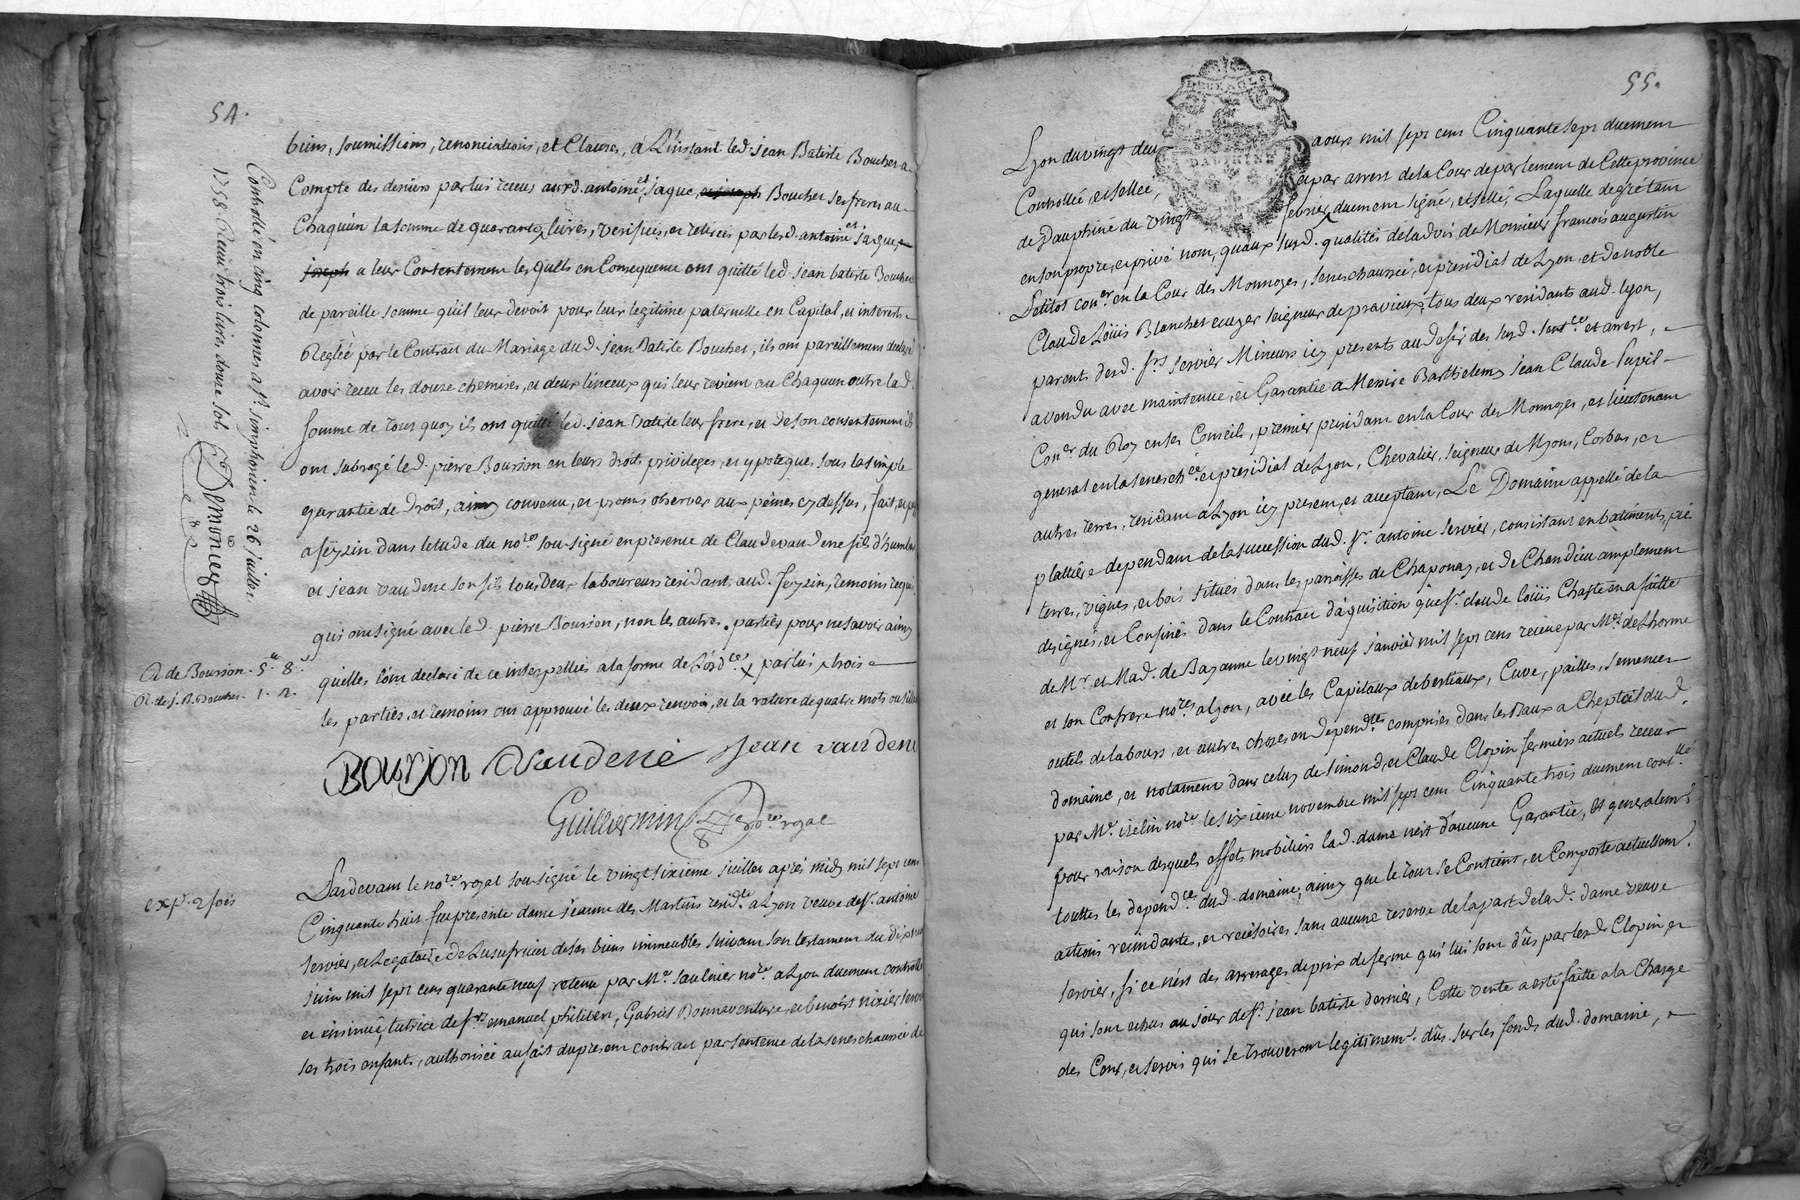 54.
biens, soumissions, renonciations, et Clauses, a L'instant led. jean Batiste Boucher a
Compte des deniers par lui receus aud. antoine et jaque Boucher ses freres au
Chaquun la somme de quarante livres, verifiées, et retirées par lesd. antoine et jaque
joseph a leur Contentement lesquels en Consequence ont quitté led. jean batiste Boucher
de pareille somme qu'il leur devoit pour leur legitime paternelle en Capital, et interests
Reglée par le Contract du Mariage dud. jean Batiste Boucher, ils ont pareillement declaré
avoir receu les douze chemises, et deux linceux qui leur revient au Chaquun outre lad.
somme de tout quoy ils ont quitté led. jean Batiste leur frere, et de son consentement ils
ont subrogé led. pierre Bourson en leurs droits privileges, et ypoteque, sous la simple
garantie de droit, ainsy convenu, et promis observer aux peines cy dessus, fait, et passé
a feyzin dans letude du nore. sousigné en presence de Claude vaudene fils d'humbert
et jean vaudene son fils tous deux laboureurs residants aud. feyzin, temoins requis
qui ont signé avec led. pierre Bourson, non les autres parties pour ne savoir ainsy
quelles l'ont declaré de ce interpellées a la forme de l'ord.ce, par lui trois
les parties, et temoins ont approuvé les deux renvois, et la rature de quatre mots
Controllé en cinq colonnes a St. simphorien le 26 juillet
1758 Receu trois livres douze sols
R de Bourson. 5tt. 8s.
R de j. B. Boucher. 1. 2.
Bourson Vaudene jean vaudene
Guilliermin nore. royal
exp. 2 fois
Pardevant le nore. royal sousigné le vingt sixieme juillet après midy mil sept cent
Cinquante huit fut presente dame jeanne des Martins resid.te a Lyon veuve de sr. antoine
servier, et Legataire de L'usufruit de ses biens immeubles suivant son testament du dix
juin mil sept cens quarante neuf retenu par Me. saulnier nore. a Lyon duement controllé
et insinué, tutrice de srs. emanuel philibert, Gabriel Bonnaventure, et benoist nizier servier
ses trois enfants, authorisée au fait du present contrat par sentence de la seneschaussée de
55.
Lyon du vingt deux aoust mil sept cent Cinquante sept duement
Controllée, et sellée, et par arrest de la Cour de parlement de Cette province
de Dauphiné du vingt fevrier duement signé, et sellé, Laquelle de gré tant
en son propre, et privé nom, qu'aux susd. qualités de l'advis de Monsieur francois augustin
Petitot coner. en la Cour des Monnoyes, seneschaussée, et presidial de Lyon, et de noble
Claude Loüis Blanchet ecuyer seigneur de pravieux, tous deux residants aud. lyon,
parents desd. srs. servier Mineurs icy presents au desir des susd. sentce. et arrest,
a vendu avec maintenue, et Garantie a Messire Barthelemy jean Claude Pupil
Coner. du Roy en ses Conseils, premier president en la Cour des Monnoyes, et lieutenant
general en la seneschée. et presidial de Lyon, Chevalier, seigneur de Myons, Corbas, et
autres terres, resident a Lyon icy present, et acceptant, Le Domaine appellé de la
plattiere dependant de la succession dud. sr. antoine servier, consistant en batiments, pré
terres, vignes, et bois situés dans les paroisses de Chaponay, et de Chandieu amplement
designés, et Confinés dans le Contract d'aquisition que sr. claude loüis Chaste en a faitte
de Mr. et Mad. de Bayanne le vingt neuf janvier mil sept cens reieue par Mes. delhorme
et son Confrere nores. a Lyon, avec les Capitaux de bestiaux, Cuve, pailles, semences
outils de labours, et autres choses en dependtes. comprises dans les Baux a Cheptail dud.
domaine, et notament dans celuy de simond, et Claude Clopin fermiers actuels receu
par Me. iselin nore. le sixieme novembre mil sept cens Cinquante trois duement contllé.
pour raison desquels effets mobiliers lad. dame n'est d'aucune Garantie, et generalemt.
touttes les dependces. dud. domaine, ainsy que le tout se Contient, et Comporte actuellemt.
actions recindantes, et recisoires sans aucune reserve de la part de lad. dame veuve
servier, si ce n'est des arrerages de prix de ferme qui lui sont dûs par lesd. Clopin, et
qui sont echus au jour de st. jean batiste dernier, Cette vente a esté faitte a la Charge
des Cens, et servis qui se trouveront legitimemt. dûs sur les fonds dud. domaine,